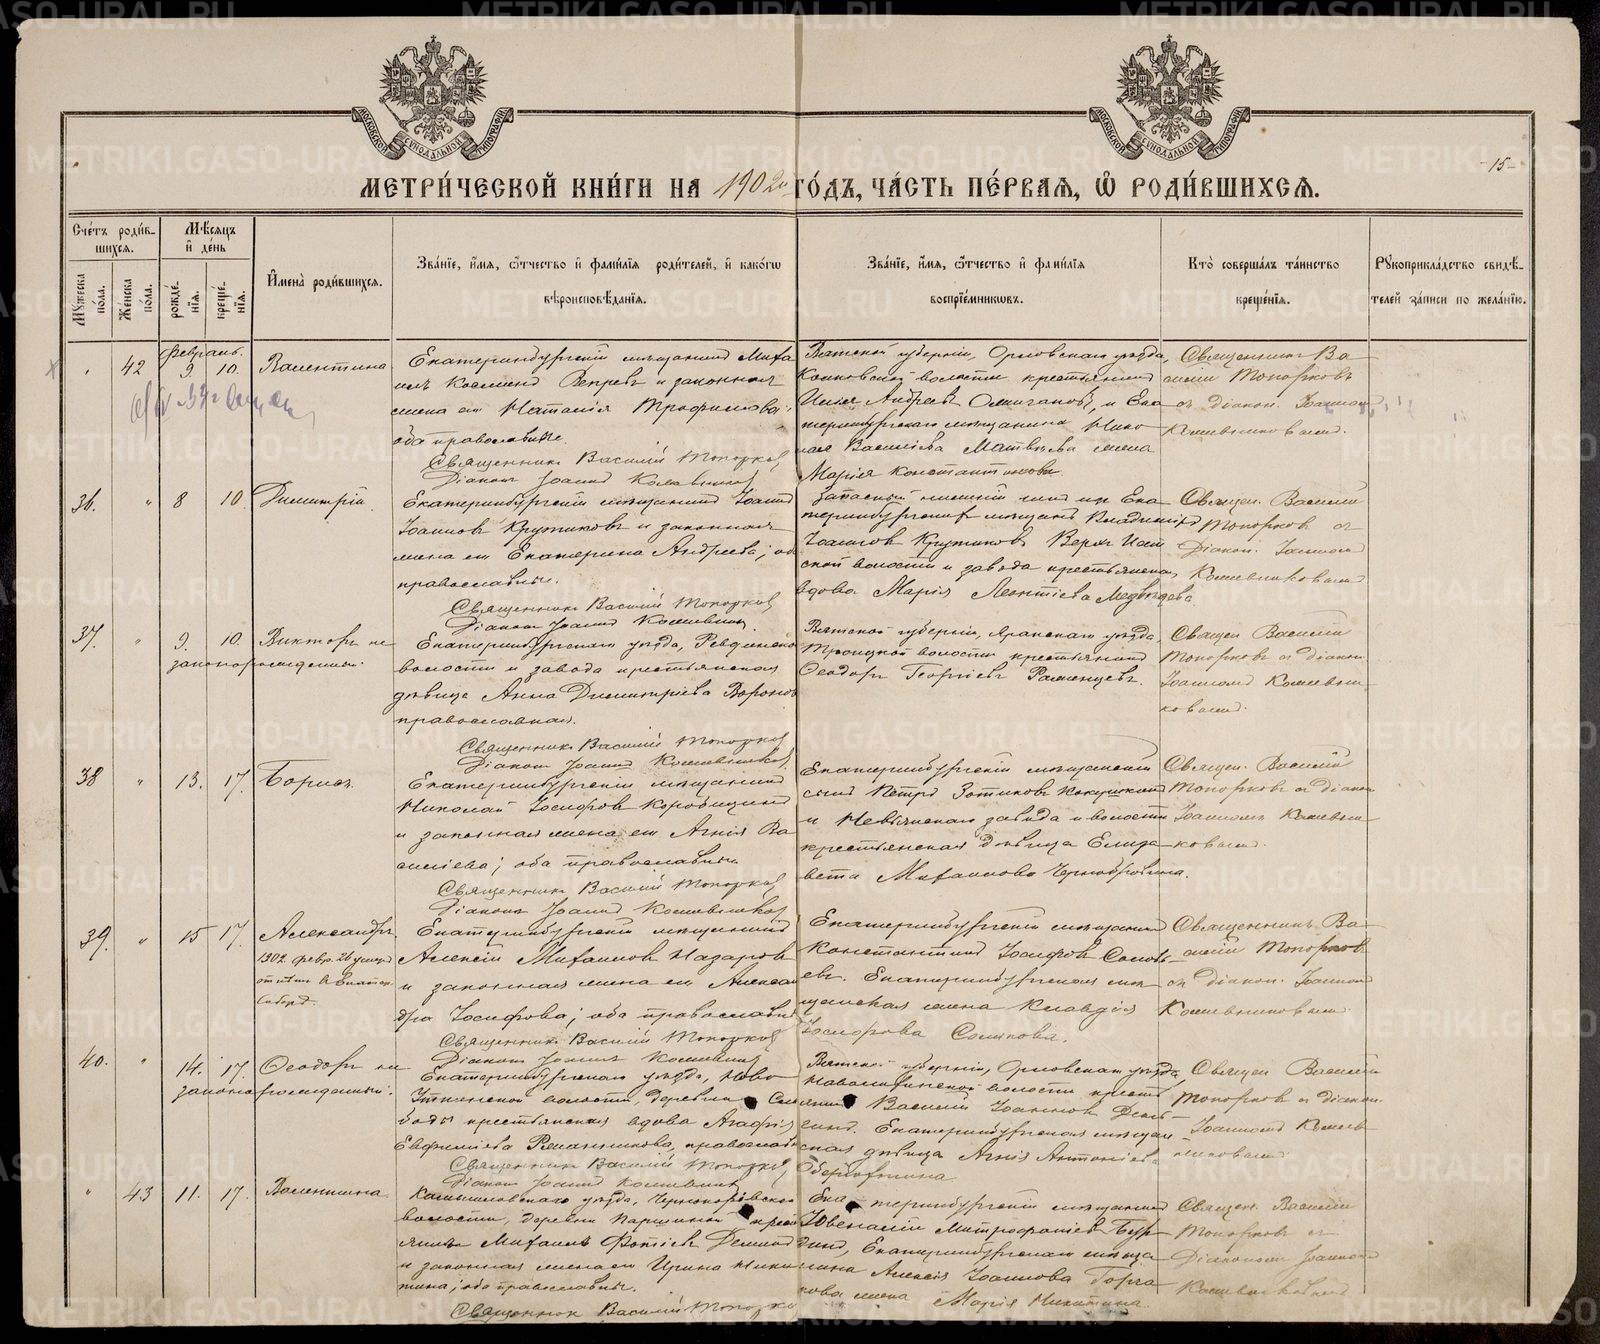 МОСКОВСКОЙ СѴНОДАЛЬНОЙ ТИПОГРАФІИ
МОСКОВСКОЙ СѴНОДАЛЬНОЙ ТИПОГРАФІИ
-15-
МЕТРИЧЕСКОЙ КНИГИ НА 1902й ГОДЪ, ЧАСТЬ ПЕРВАЯ, Ѡ РОДИВШИХСЯ.
Счетъ родившихся.
Мужеска пола.
Женска пола.
Мѣсяцъ и день
рожденія.
крещенія.
Имена родившихся.
Званіе, имя, отчество и фамилія родителей, и какогω вѣроисповѣданія.
Званіе, имя, отчество и фамилія воспріемниковъ.
Кто совершалъ таинство крещенія.
Рукоприкладство свидѣтелей записи по желанію.
Февраль.
42 9 10. Валентина
Екатеринбургскій мѣщанинъ Миха
илъ Косминъ Вепревъ и законная
жена его Наталія Трофимова;
оба православные.
Священникъ Василій Топорковъ
Діаконъ Іоаннъ Кожевниковъ
Вятской губерніи, Орловскаго уѣзда,
волости крестьянинъ
Илія Андреевъ и Ека
теринбургскаго мѣщанина Нико
лая Васильева Матвѣева жена
Марія Константинова
Священникъ Ва
силій Топорковъ
съ діакон. Іоанном
Кожевниковымъ.
36. " 8 10. Димитрій.
Екатеринбургскій мѣщанинъ Іоаннъ
Іоанновъ Крутиковъ и законная
жена его Екатерина Андреева; оба
православные.
Священникъ Василій Топорковъ
Діаконъ Іоаннъ Кожевник.
Запасный нижній чинъ изъ Ека
теринбургскихъ мѣщанъ Владиміръ
Іоанновъ Крутиковъ Верхъ Исет
ской волости и завода крестьянская
вдова Марія Леонтіева Медвѣдева
Священ. Василій
Топорковъ съ
Діакон. Іоанном
Кожевниковымъ
37. " 9. 10. Викторъ не
законорожденный.
Екатеринбургскаго уѣзда, Ревдинской
волости и завода крестьянская
дѣвица Анна Димитріева Воронова
православная.
Священникъ Василій Топорковъ
Діаконъ Іоаннъ Кожевниковъ
Вятской губерніи, Яранскаго уѣзда,
Троицкой волости крестьянинъ
Ѳеодоръ Георгіевъ Рашенцевъ.
Священ Василій
Топорковъ съ діакон.
Іоанномъ Кожевни
ковымъ.
38 " 13. 17. Борисъ.
Екатеринбургскій мѣщанинъ
Николай Іосифовъ Коробицынъ
и законная жена его Агнія Ва
силіева; оба православные
Священникъ Василій Топорковъ
Діаконъ Іоаннъ Кожевниковъ
Екатеринбургскій мѣщанскій
сынъ Петръ Зотиковъ Кокушкинъ
и Невьянскаго завода и волости
крестьянская дѣвица Елиза
вета Михаилова Чернобровина.
Священ. Василій
Топорковъ съ діакон
Іоанномъ Кожевни
ковымъ.
39. " 15 17. Александръ.
1902. февр. 26 умеръ
Екатеринбургскій мѣщанинъ
Алексій Михаиловъ Назаровъ
и законная жена его Алексан
дра Іосифова; оба православные
Священникъ Василій Топорковъ
Діаконъ Іоаннъ Кожевник
Екатеринбургскій мѣщанинъ
Константинъ Іосифовъ Соловь
евъ. Екатеринбургская мѣ
щанская жена Клавдія
Іосифова
Священникъ Ва
силій Топорковъ
съ діакон. Іоанном
Кожевниковымъ.
40. " 14. 17. Ѳеодоръ не
законорожденный.
Екатеринбургскаго уѣзда, Ново
Уткинской волости, деревни Сло
боды крестьянская вдова Агафія
Евфиміева Романникова, православная
Священникъ Василій Топорковъ
Діаконъ Іоаннъ Кожевник
Вятской губерніи, Орловскаго уѣзда,
волости крест
янинъ Василій Іоанновъ
Екатеринбургская мѣщан
ская дѣвица Агнія Антоніева
Оберюхтина
Священ Василій
Топорковъ съ діакон.
Іоанномъ Кожев
никовымъ
" 43 11. 17. Валентина.
Камышловскаго уѣзда, Чернокоровской
волости, деревни Паршиной крест
янинъ Михаилъ Фотіевъ
и законная жена его Ирина Ники
тина; оба православные.
Священникъ Василій Топорко
Екатеринбургскій мѣщанинъ
Ювеналій Митрофаніевъ Бур
динъ, Екатеринбургскаго мѣща
нина Алексія Іоаннова Горча
кова жена Марія Никитина
Священ. Василій
Топорковъ съ
Діакономъ Іоанном
Кожевниковымъ
METRIKI.GASO-URAL.RU